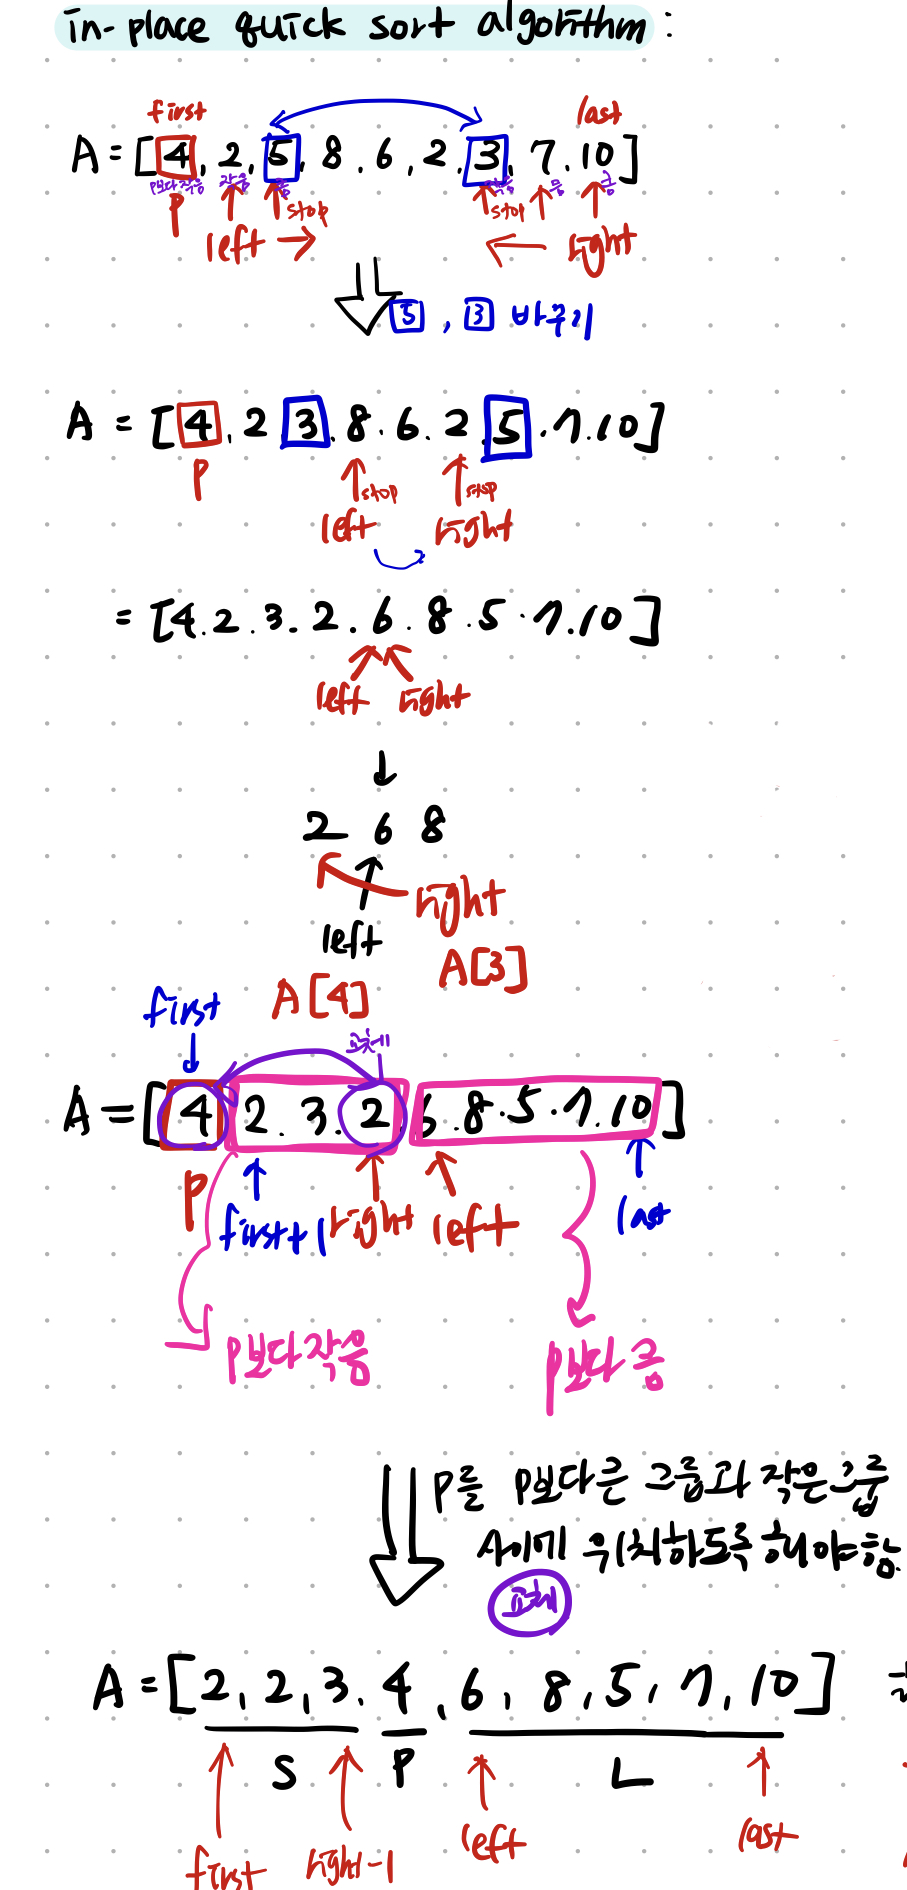 in-place quick sort algorithm :
first last
A = [4, 2, 5, 8, 6, 2, 3, 7, 10]
P보다작음 작음 큼 작음 큼 큼
P stop stop
left → ← right
5, 3 바꾸기
A = [4, 2 3, 8, 6, 2 5, 7, 10]
P stop stop
left right
= [4. 2. 3. 2. 6. 8. 5. 7. 10]
left right
↓
2 6 8
right
left
A[3]
A[4]
first
교체
A = [4 2. 3. 2 6. 8. 5. 7. 10]
P first+1 right left last
P보다작음 P보다 큼
P를 P보다 큰 그룹과 작은그룹
사이에 위치하도록 해야함.
교체
A = [2, 2, 3, 4, 6, 8, 5, 7, 10]
S P L
first right-1 left last